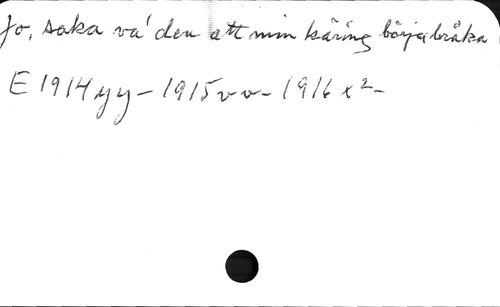 Jo, saka va' den att min käring börja bråka
E 1914 yy - 1915 vv - 1916 x2 -